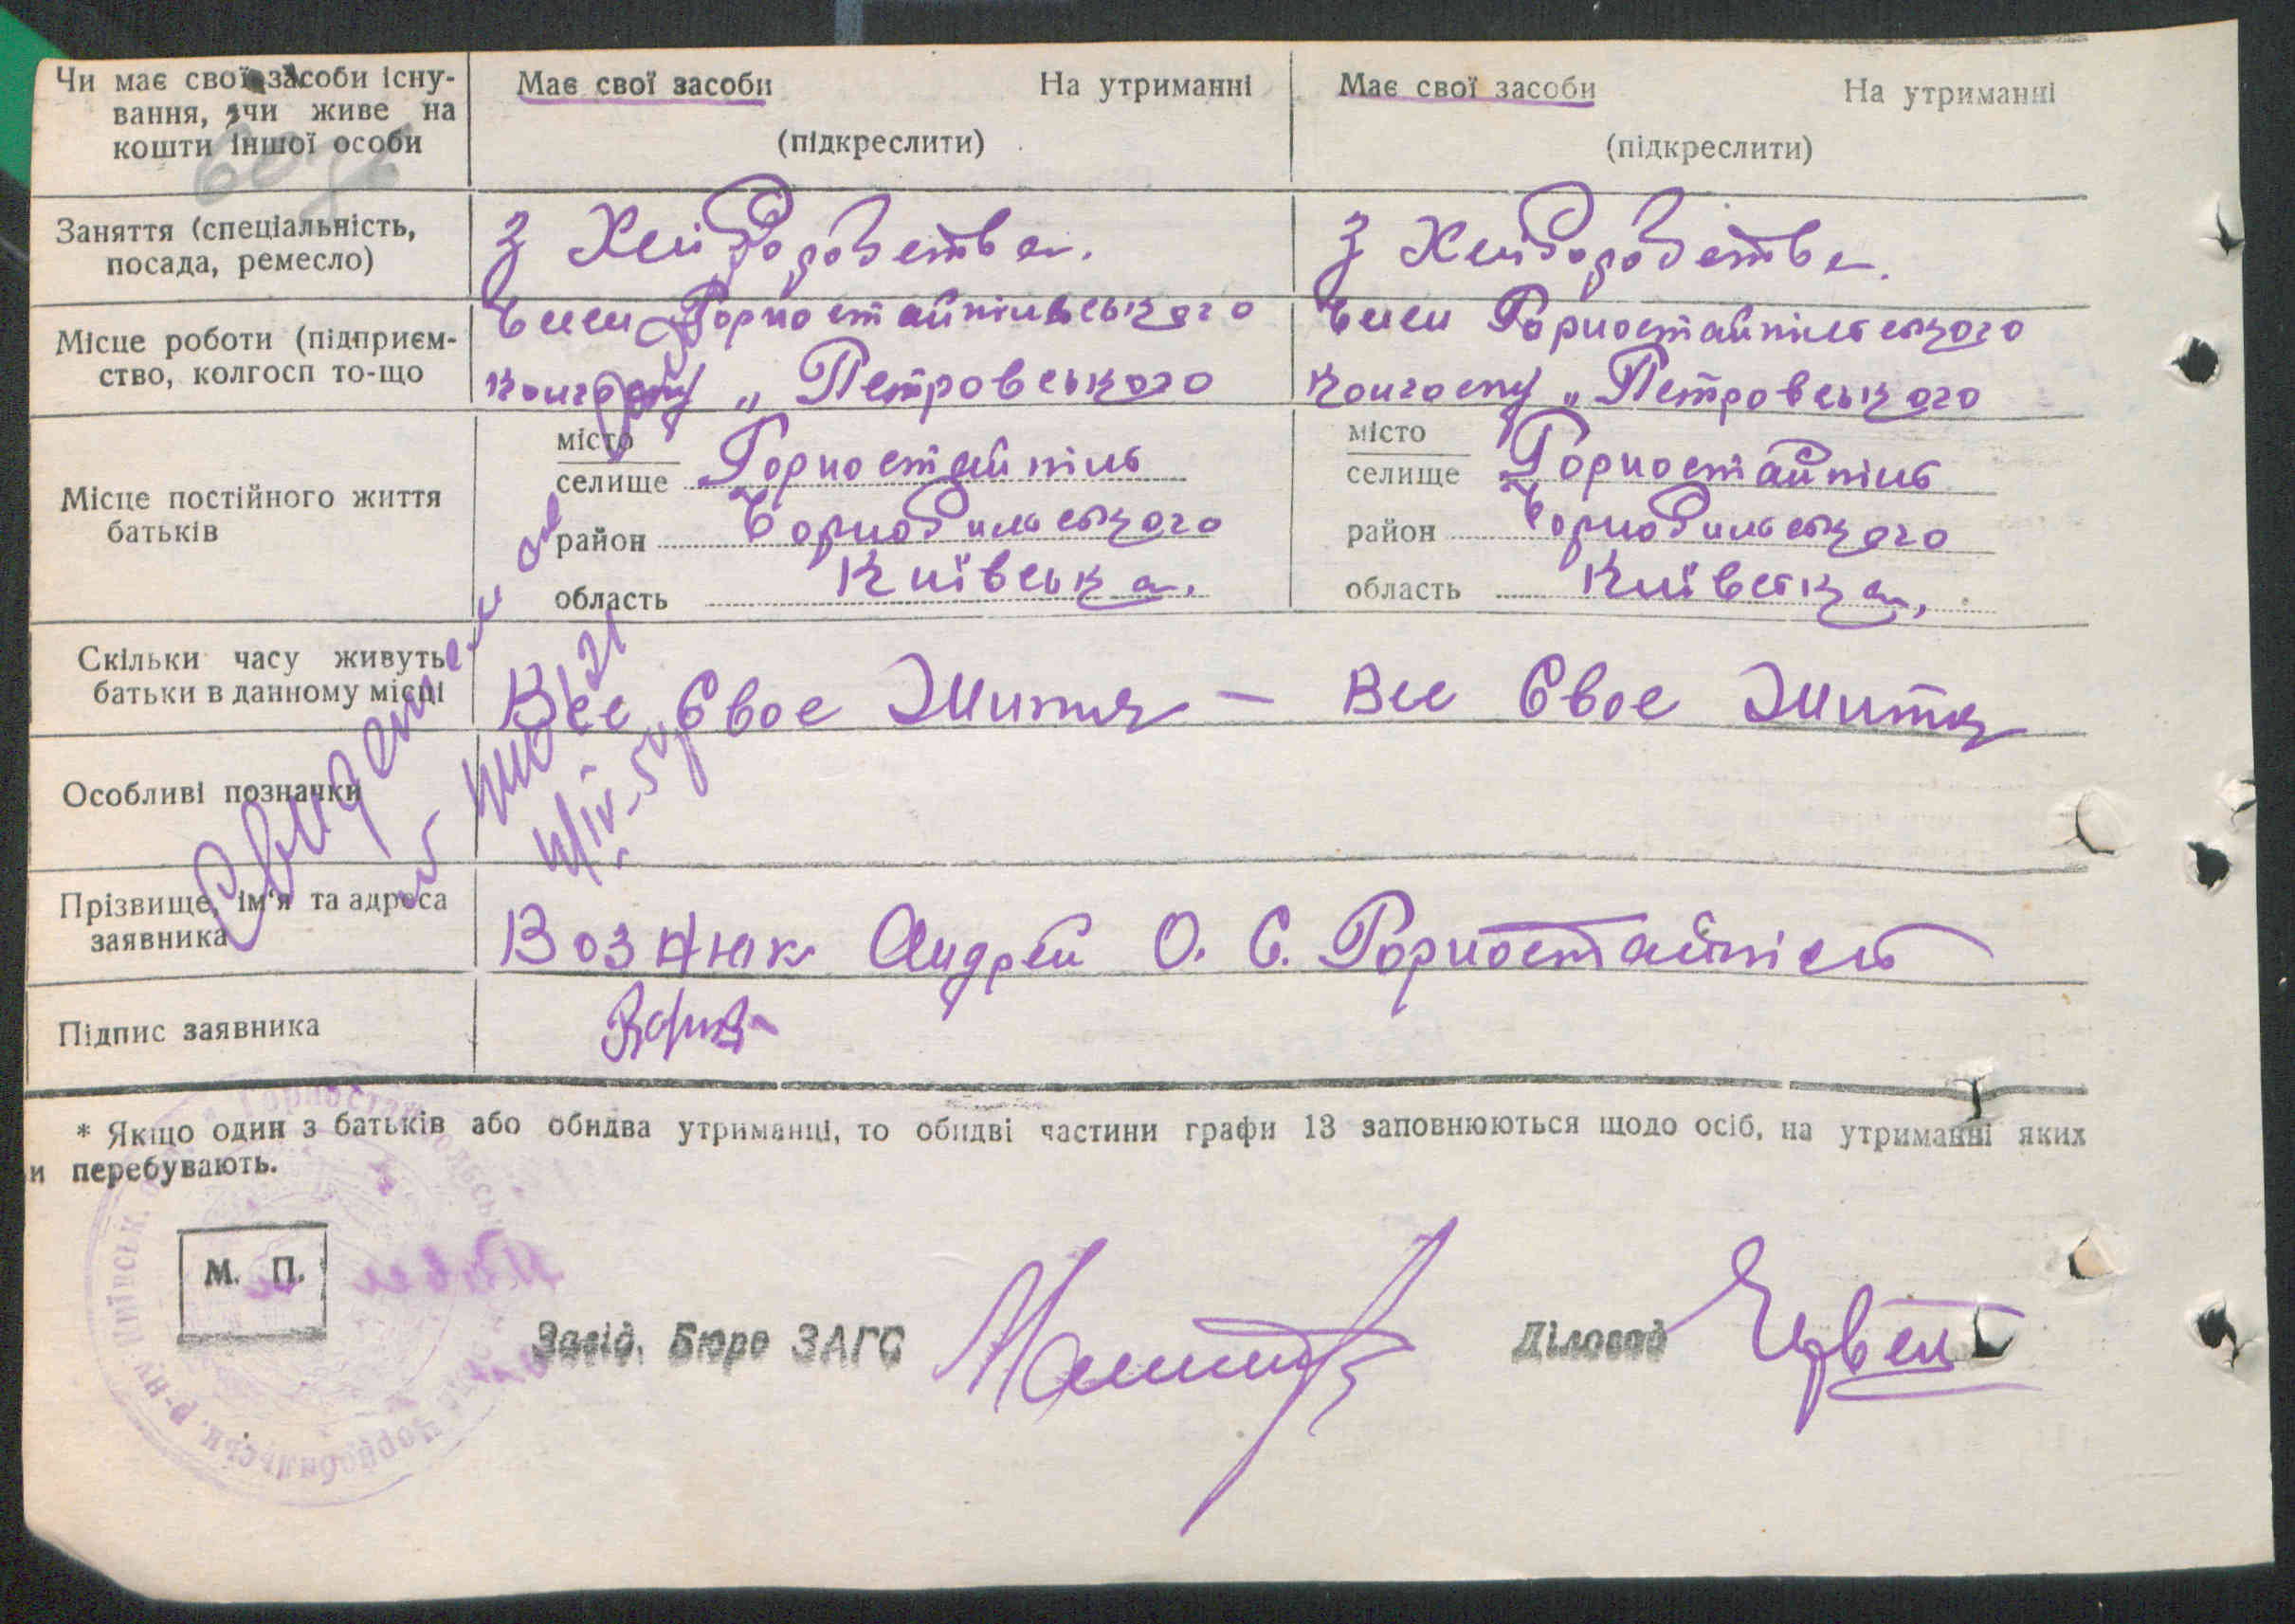 Чи має свої засоби існу-
вання, чи живе на
кошти іншої особи
Має свої засоби На утриманні
(підкреслити)
Має свої засоби На утриманні
(підкреслити)
Заняття (спеціальність,
посада, ремесло)
З Хліборобства.
З Хліборобства.
Місце роботи (підприєм-
ство, колгосп то-що
Член Горностайпільського
колгоспу „ Петровського
Член Горностайпільського
колгоспу „ Петровського
Місце постійного життя
батьків
місто
селище Горностайпіль
район Чорнобильського
область Київська.
місто
селище Горностайпіль
район Чорнобильського
область Київська,
Скільки часу живуть
батьки в данному місці
Все Свое Життя — Все Свое Життя
Особливі позначки
Прізвище, ім'я та адреса
заявника
Вознюк Андрей О. С. Горностайпіль
Підпис заявника
* Якщо один з батьків або обидва утриманці, то обидві частини графи 13 заповнюються щодо осіб, на утриманні яких
и перебувають.
М. П.
Завід. Бюро ЗАГС
Діловод